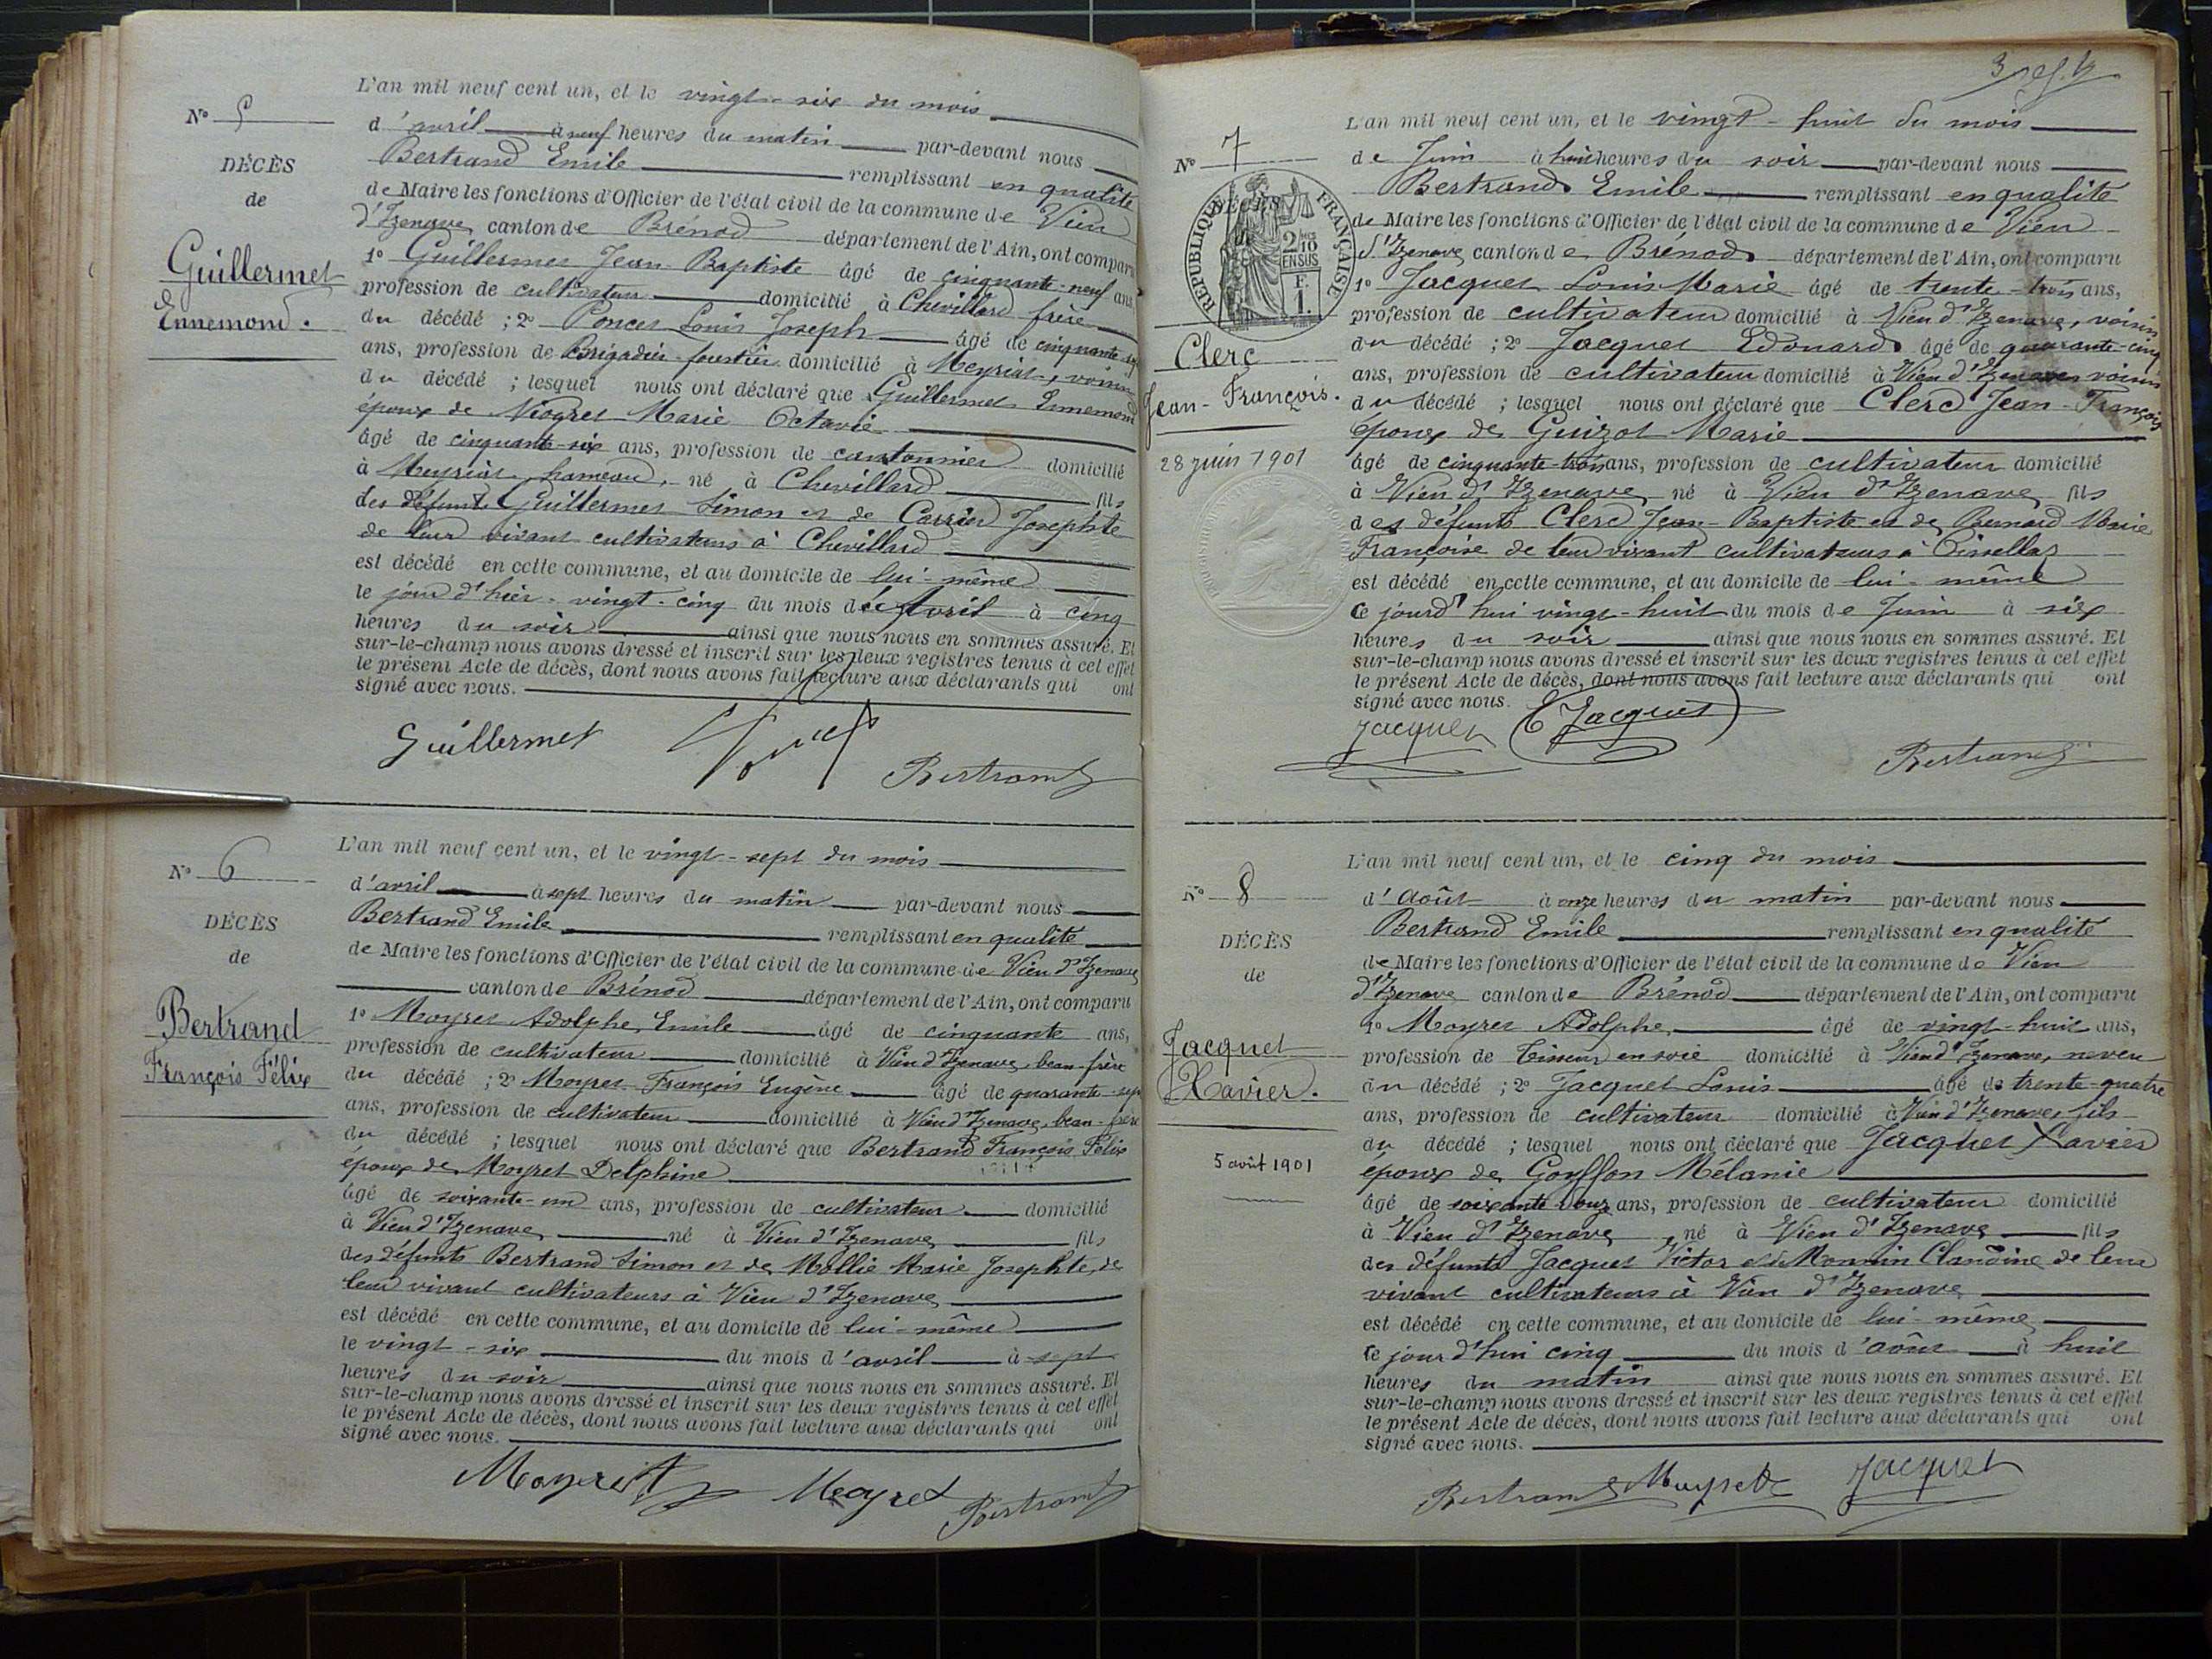 N° 5
DÉCÈS
de
Guillermet
Ennemond.
L'an mil neuf cent un, et le vingt-six du mois
d'avril à neuf heures du matin par-devant nous
Bertrand Emile remplissant en qualité
de Maire les fonctions d'Officier de l'état civil de la commune de Vieu
d'Izenave canton de Brénod département de l'Ain, ont comparu
1° Guillermet Jean Baptiste âgé de cinquante-neuf ans
profession de cultivateur domicilié à Chevillard frère
du décédé ; 2° Poncet Louis Joseph âgé de cinquante
ans, profession de Brigadier forestier domicilié à Meyriat, voisin
du décédé ; lesquel nous ont déclaré que Guillermet Ennemond
époux de Niogret Marie Octavie
âgé de cinquante-six ans, profession de cantonnier domicilié
à Meyriat hameau, né à Chevillard fils
des défunts Guillermet Simon et de Carrier Josephte
de leur vivant cultivateurs à Chevillard
est décédé en cette commune, et au domicile de lui-même
le jour d'hier vingt-cinq du mois d'Avril à cinq
heures du soir ainsi que nous nous en sommes assuré. Et
sur-le-champ nous avons dressé et inscrit sur les deux registres tenus à cet effet
le présent Acte de décès, dont nous avons fait lecture aux déclarants qui ont
signé avec nous.
Guillermet Poncet Bertrand
N° 6
DÉCÈS
de
Bertrand
François Félix
L'an mil neuf cent un, et le vingt-sept du mois
d'avril à sept heures du matin par-devant nous
Bertrand Emile remplissant en qualité
de Maire les fonctions d'Officier de l'état civil de la commune de Vieu d'Izenave
canton de Brénod département de l'Ain, ont comparu
1° Moyret Adolphe Emile âgé de cinquante ans,
profession de cultivateur domicilié à Vieu d'Izenave, beau-frère
du décédé ; 2° Moyret François Eugène âgé de quarante-sept
ans, profession de cultivateur domicilié à Vieu d'Izenave, beau-frère
du décédé ; lesquel nous ont déclaré que Bertrand François Félix
époux de Moyret Delphine
âgé de soixante-un ans, profession de cultivateur domicilié
à Vieu d'Izenave né à Vieu d'Izenave fils
des défunts Bertrand Simon et de Mollie Marie Josephte, de
leur vivant cultivateurs à Vieu d'Izenave
est décédé en cette commune, et au domicile de lui-même
le vingt-six du mois d'avril à sept
heures du soir ainsi que nous nous en sommes assuré. Et
sur-le-champ nous avons dressé et inscrit sur les deux registres tenus à cet effet
le présent Acte de décès, dont nous avons fait lecture aux déclarants qui ont
signé avec nous.
Moyret Moyret Bertrand
N° 7
DÉCÈS
de
RÉPUBLIQUE FRANÇAISE
2/10
EN SUS
F.
1.
Clerc
Jean-François.
28 juin 1901
L'an mil neuf cent un, et le vingt-huit du mois
de Juin à huit heures du soir par-devant nous
Bertrand Emile remplissant en qualité
de Maire les fonctions d'Officier de l'état civil de la commune de Vieu
d'Izenave canton de Brénod département de l'Ain, ont comparu
1° Jacquet Louis Marie âgé de trente-trois ans,
profession de cultivateur domicilié à Vieu d'Izenave, voisin
du décédé ; 2° Jacquet Edouard âgé de quarante-cinq
ans, profession de cultivateur domicilié à Vieu d'Izenave, voisin
du décédé ; lesquel nous ont déclaré que Clerc Jean-François
époux de Guizot Marie
âgé de cinquante-trois ans, profession de cultivateur domicilié
à Vieu d'Izenave né à Vieu d'Izenave fils
des défunts Clerc Jean-Baptiste et de Bernard Marie
Françoise de leur vivant cultivateurs à
est décédé en cette commune, et au domicile de lui-même
ce jourd'hui vingt-huit du mois de Juin à six
heures du soir ainsi que nous nous en sommes assuré. Et
sur-le-champ nous avons dressé et inscrit sur les deux registres tenus à cet effet
le présent Acte de décès, dont nous avons fait lecture aux déclarants qui ont
signé avec nous.
Jacquet E Jacquet
Bertrand
N° 8
DÉCÈS
de
Jacquet
Xavier.
5 août 1901
L'an mil neuf cent un, et le cinq du mois
d'Août à onze heures du matin par-devant nous
Bertrand Emile remplissant en qualité
de Maire les fonctions d'Officier de l'état civil de la commune de Vieu
d'Izenave canton de Brénod département de l'Ain, ont comparu
1° Moyret Adolphe âgé de vingt-huit ans,
profession de Tisseur en soie domicilié à Vieu d'Izenave, neveu
du décédé ; 2° Jacquet Louis âgé de trente-quatre
ans, profession de cultivateur domicilié à Vieu d'Izenave, fils
du décédé ; lesquel nous ont déclaré que Jacquet Xavier
époux de Gouffon Mélanie
âgé de soixante-onze ans, profession de cultivateur domicilié
à Vieu d'Izenave, né à Vieu d'Izenave fils
des défunts Jacquet Victor et de Monnin Claudine de leur
vivant cultivateurs à Vieu d'Izenave
est décédé en cette commune, et au domicile de lui-même
ce jour d'hui cinq du mois d'août à huit
heures du matin ainsi que nous nous en sommes assuré. Et
sur-le-champ nous avons dressé et inscrit sur les deux registres tenus à cet effet
le présent Acte de décès, dont nous avons fait lecture aux déclarants qui ont
signé avec nous.
Bertrand Moyret Jacquet